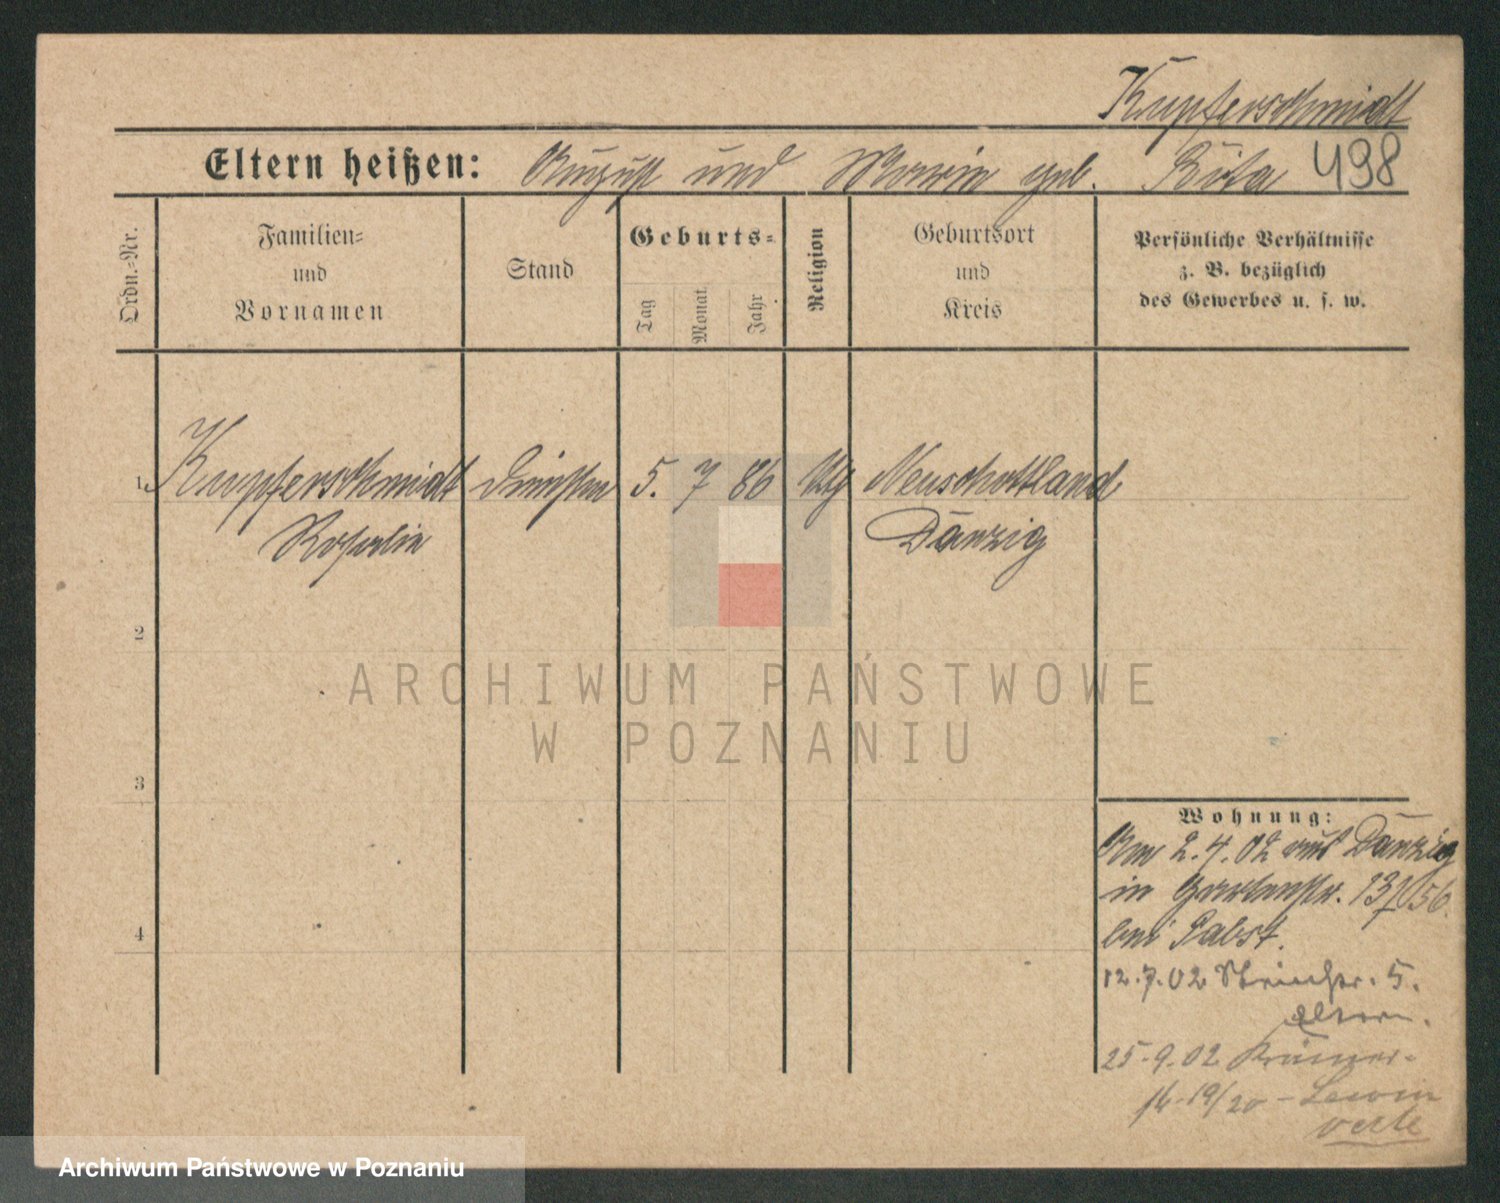 Kupferschmidt
Eltern heißen: August und Marie geb. 498
Ordn.-Nr.
Familien-
und
Vornamen
Stand
Geburts-
Tag
Monat
Jahr
Religion
Geburtsort
und
Kreis
Persönliche Verhältnisse
z. B. bezüglich
des Gewerbes u. s. w.
1 Kupferschmidt 5. 7 86 Neuschottland
Rosalie Danzig
2
3
4
Wohnung:
Am 2.4.02 aus Danzig
in Gartenstr. 13
bei Pabst.
12.7.02 5.
Eltern.
25.9.02 Krämer-
19/20
ARCHIWUM PAŃSTWOWE
W POZNANIU
Archiwum Państwowe w Poznaniu